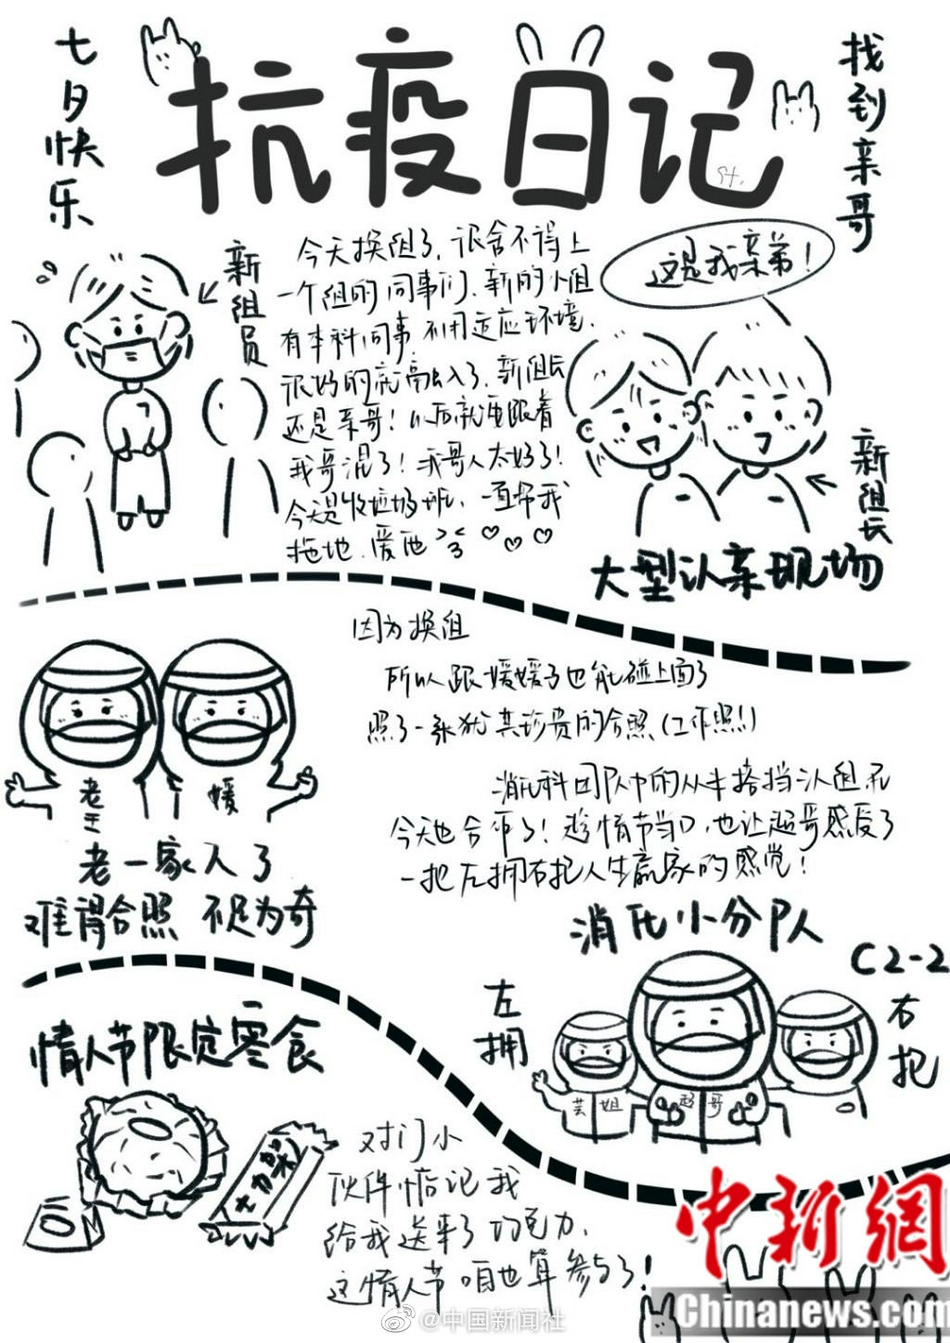 七夕快乐
抗疫日记
找到亲哥
新组员
今天换组了,很舍不得上
一个组的同事们、新的小组
有本科同事,不用适应环境、
很好的就高融入了、新组长
还是亲哥!以后就要跟着
我哥混了!我哥人太好了!
今天是收垃圾班、一直帮我
拖地、爱西
这是我亲弟!
新组长
大型认亲现场
因为换组
所以跟媛媛子也能碰上面了
照了一张犹其珍贵的合照(工作照!)
老王
媛
老一家人了
难得合照 不足为奇
消化科团队中的从末搭档认组死
今天也合作了!趁情节当口,也让超哥感受了
一把左拥右抱人生赢家的感觉!
消化小分队
C2-2
左拥
右抱
芸姐
超哥
情人节限定零食
士力架
对门小
伙伴惦记我
给我送来了巧克力、
这情人节咱也算参与了!
中新網
Chinanews.com
@中国新闻社